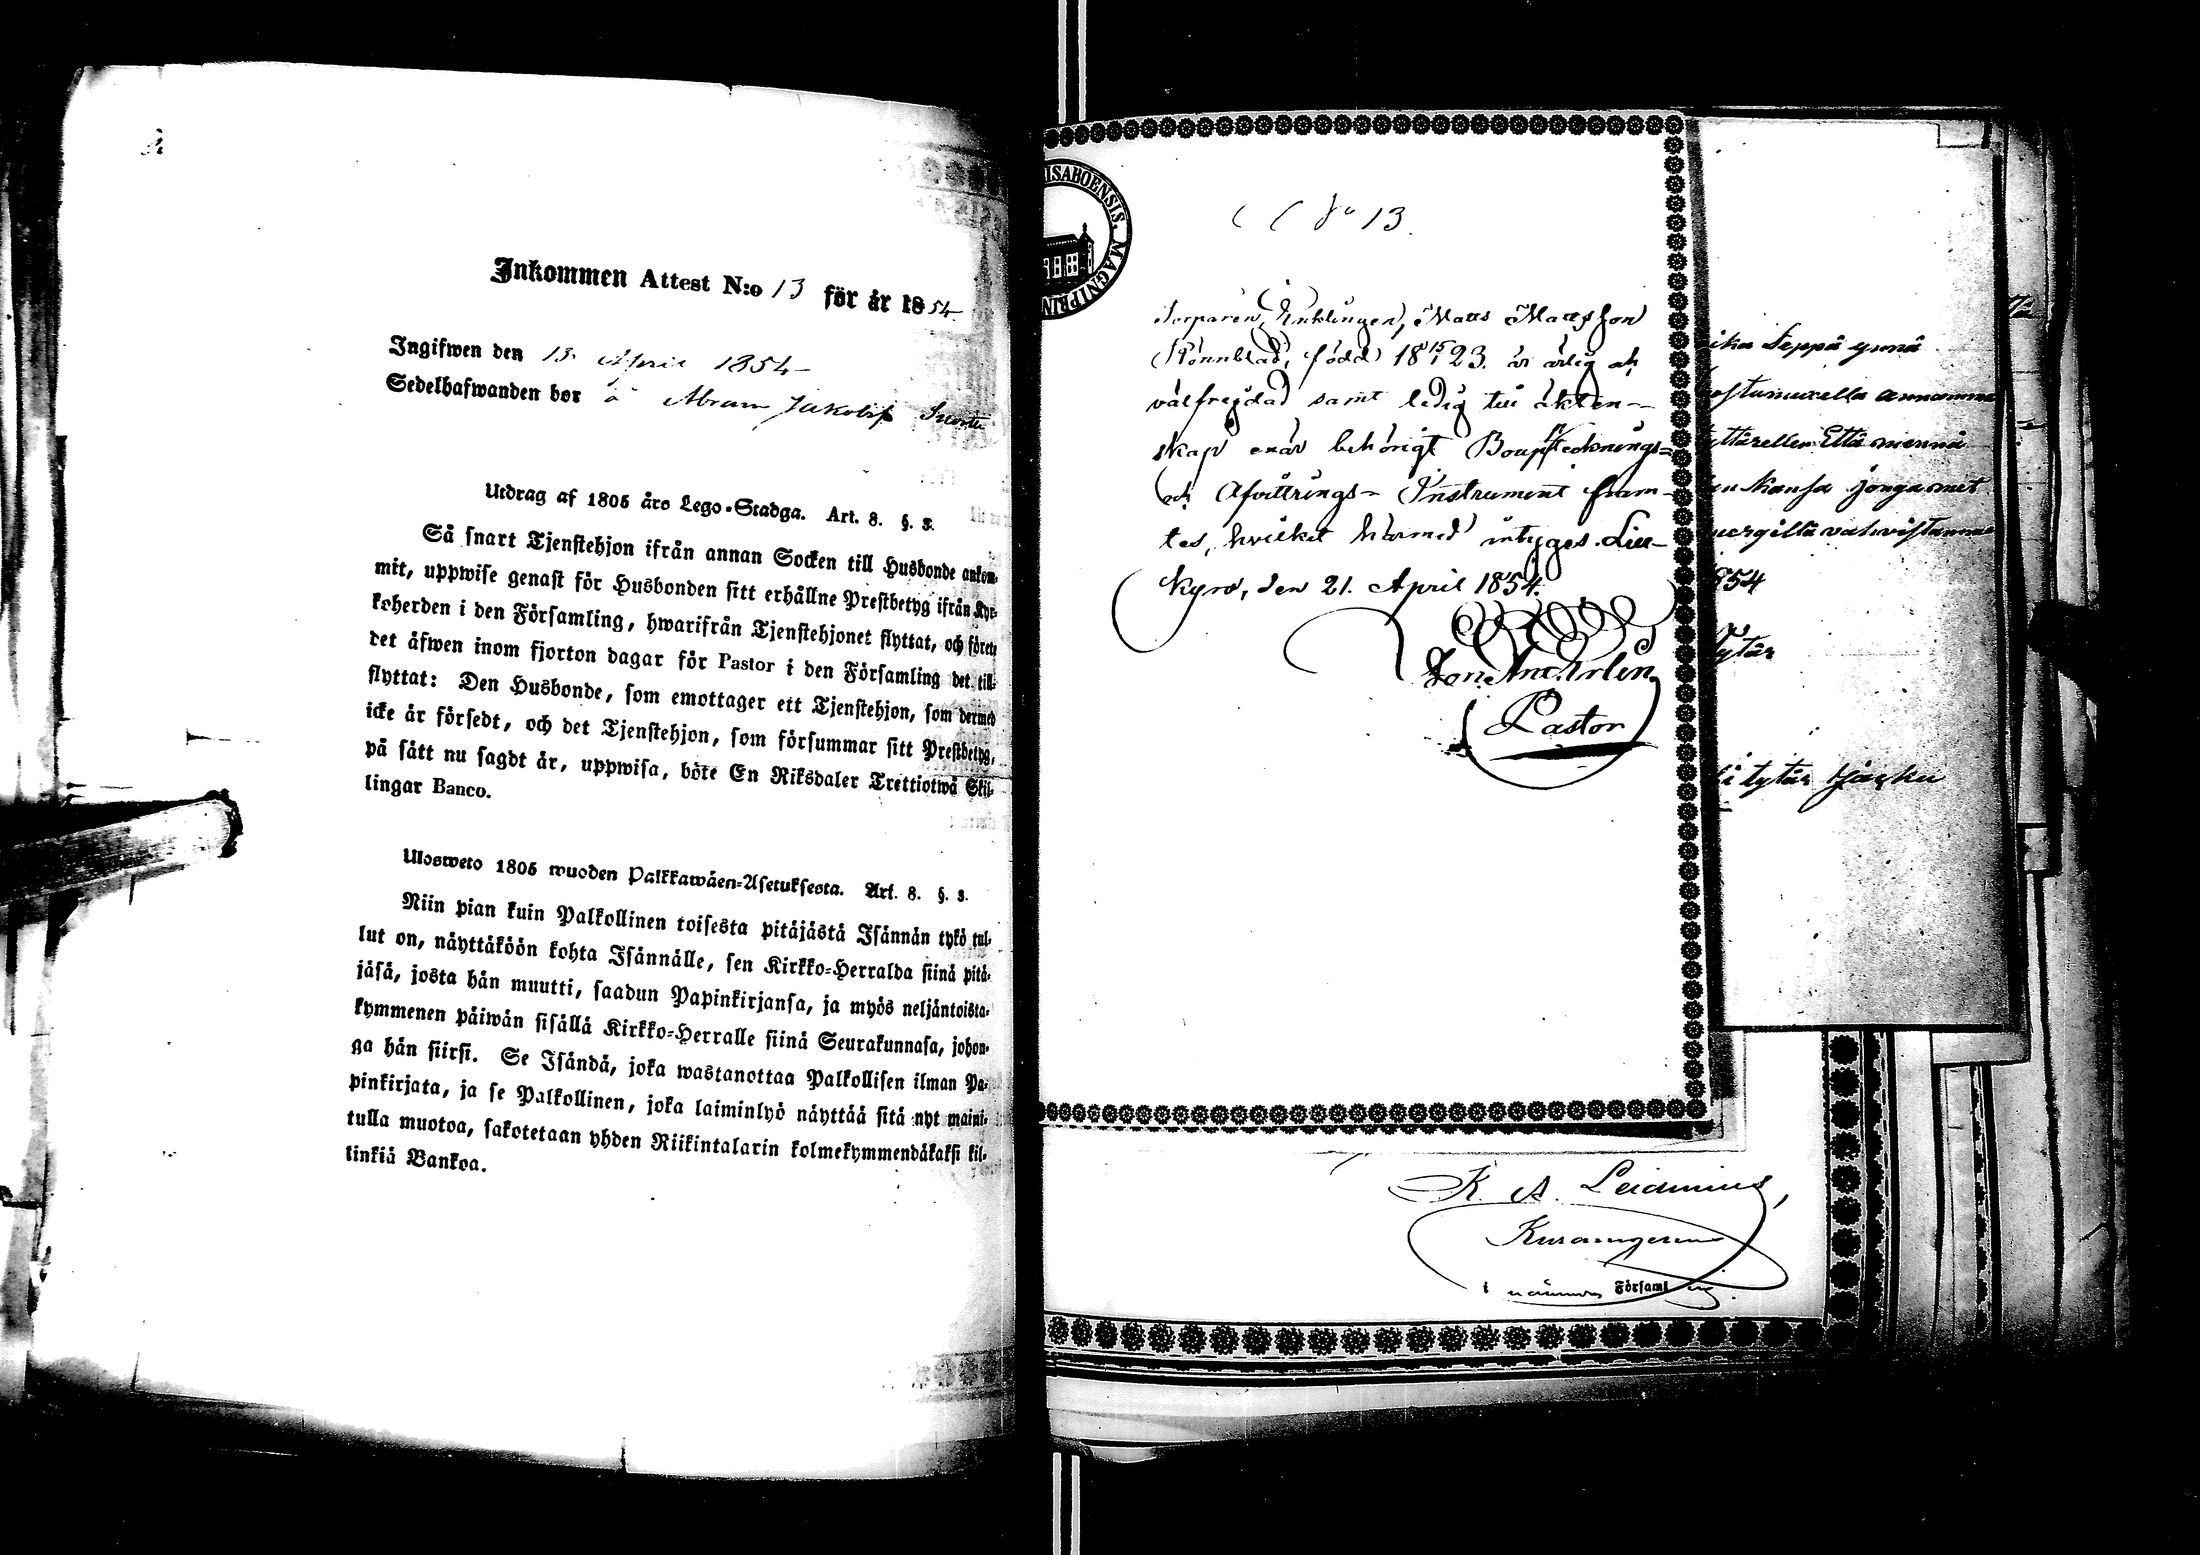 Inkommen Attest N:o 13 för år 1854
Ingifwen den 13 April 1854
Sedelhafwanden bor å Abram Jakobss
Utdrag af 1805 års Lego-Stadga. Art. 8. §. 3.
Så snart Tjenstehjon ifrån annan Socken till Husbonde ankom-
mit, uppwise genast för Husbonden sitt erhållne Prestbetyg ifrån Kyr-
koherden i den Församling, hwarifrån Tjenstehjonet flyttat, och förete
det äfwen inom fjorton dagar för Pastor i den Församling det till-
flyttat: Den Husbonde, som emottager ett Tjenstehjon, som dermed
icke är försedt, och det Tjenstehjon, som försummar sitt Prestbetyg,
på sätt nu sagdt är, uppwisa, böte En Riksdaler Trettiotwå Skil-
lingar Banco.
Ulosweto 1805 wuoden Palkkawäen-Asetuksesta. Art. 8. §. 3.
Niin pian kuin Palkollinen toisesta pitäjästä Isännän tykö tul-
lut on, näyttäköön kohta Isännälle, sen Kirkko-Herralda siinä pitä-
jäsä, josta hän muutti, saadun Papinkirjansa, ja myös neljäntoista-
kymmenen päiwän sisällä Kirkko-Herralle siinä Seurakunnasa, johon-
ga hän siirsi. Se Isändä, joka wastanottaa Palkollisen ilman Pa-
pinkirjata, ja se Palkollinen, joka laiminlyö näyttää sitä nyt maini-
tulla muotoa, sakotetaan yhden Riikintalarin kolmekymmendäkaksi kil-
linkiä Bankoa.
ISABOENSIS. MAGNI PRIN
No 13.
Torparen, Enklingen, Matts Mattsson
Rönnblad, född 18 15/1 23. är ärlig och
välfrejdad samt ledig till äkten-
skap enär behörigt Bouppteknings-
och Afvittrings-Instrument fram-
tes, hvilket härmed intyges. Lill-
kyro, den 21. April 1854.
Pastor
ika Seppä
54
tytär
i tytär
K. A. Leidenius,
i Församl